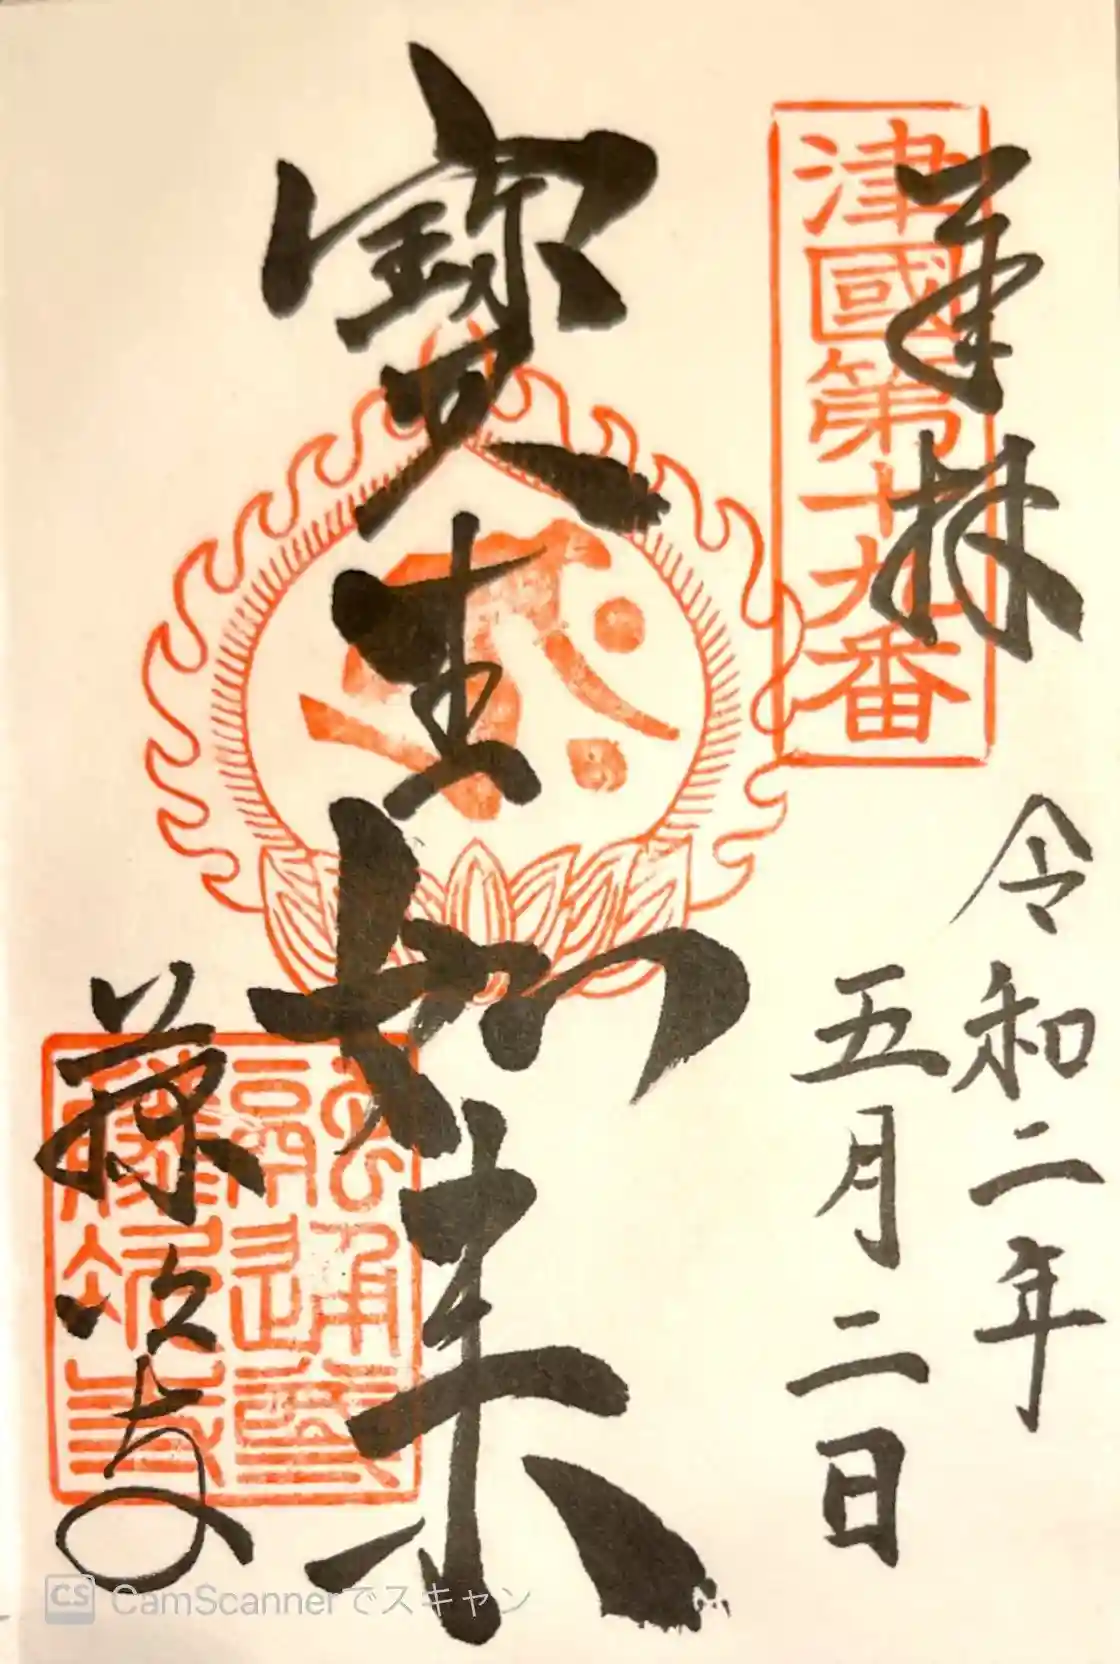 奉拝
津國第十九番
令和二年
五月二日
寶生如来
藤次寺
CS CamScannerでスキャン